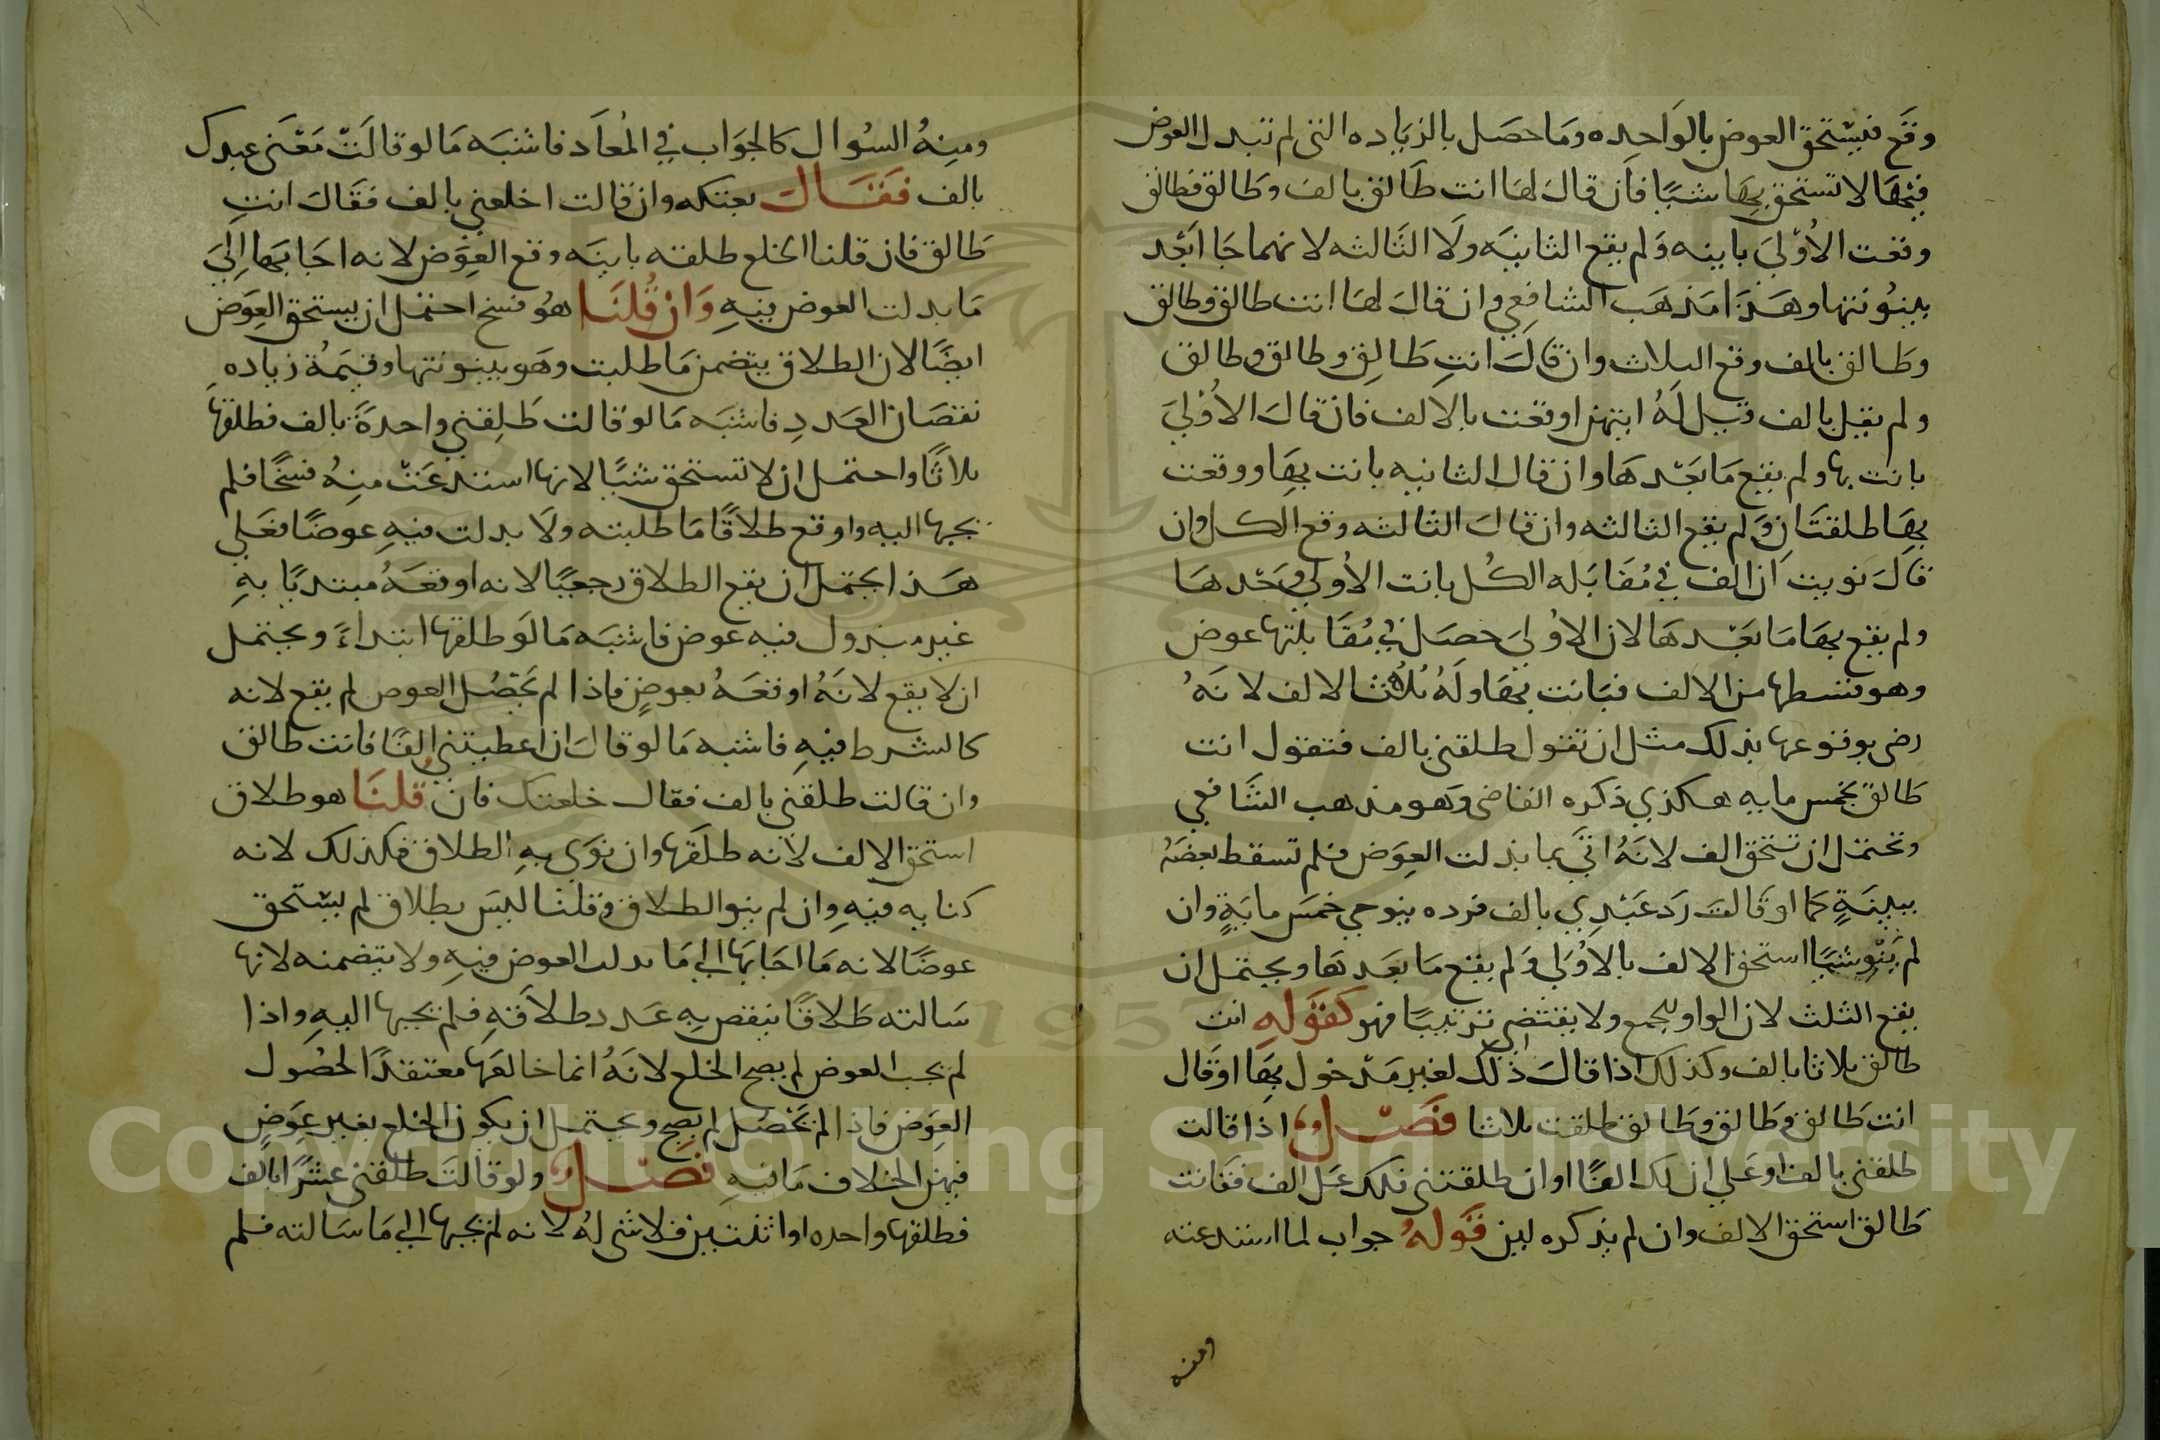 وقع فيستحق العوض بالواحده وما حصل بالزياده التي لم تبدل العوض
فيها لا تستحق بها شيا فان قال لها انت طالق بالف وطالق وطالق
وقعت الاولى باينه ولم يقع الثانيه ولا الثالثه لانهما جاا بعد
بينونتها وهذا مذهب الشافعي وان قال لها انت طالق وطالق
وطالق بالف وقع الثلاث وان قال انت طالق وطالق وطالق
ولم يقل بالف قيل له ايتهن اوقعت بالالف فان قال الاولى
بانت بها ولم يقع ما بعدها وان قال الثانيه بانت بها ووقعت
بها طلقتان ولم يقع الثالثه وان قال الثالثه وقع الكل وان
قال نويت ان الف في مقابله الكل بانت الاولى وحدها
ولم يقع بها ما بعدها لان الاولى حصل في مقابلتها عوض
وهو قسطها من الالف فبانت بها وله ثلث الالف لانه
رضى بوقوعها بذلك مثل ان تقول طلقني بالف فتقول انت
طالق بخمس مايه هكذي ذكره القاضي وهو مذهب الشافعي
وتحتمل ان تستحق الف لانه اتى بما بذلت العوض فلم تسقط بعضه
ببينة كما او قالت رد عبدي بالف فرده ينوي خمس ماية وان
لم ينو شيا استحق الالف بالاولى ولم يقع ما بعدها ويحتمل ان
يقع الثلث لان الواو للجمع ولا يقتضي ترتيبا فهو كقوله انت
طالق ثلاثا بالف وكذلك اذا قال ذلك لغير مدخول بها او قال
انت طالق وطالق وطالق طلقت ثلاثا فصل اذا قالت
طلقني بالف او على ان لك الفا او ان طلقتني فلك على الف فقال انت
طالق استحق الالف وان لم يذكره لين قوله جواب لما استدعته
ومنه
ومنه السوال كالجواب في المعاد فاشبه ما لو قالت معنى عبدك
بالف فقال بعتكه وان قالت اخلعني بالف فقال انت
طالق فان قلنا الخلع طلقه باينه وقع العوض لانه اجابها الى
ما بدلت العوض فيه وان قلنا هو فسخ احتمل ان يستحق العوض
ايضا لان الطلاق يتضمن ما طلبت وهو بينونتها وفيه زياده
نقصان العدد فاشبه ما لو قالت طلقني واحدة بالف فطلقها
ثلاثا واحتمل ان لا تستحق شيا لانها استدعت منه فسخا فلم
يجبها اليه واوقع طلاقا ما طلبته ولا بدلت فيه عوضا فعلى
هذا يحتمل ان يقع الطلاق رجعيا لانه اوقعه مبتديا به
غير مبذول فيه عوض فاشبه ما لو طلقها ابتداء ويحتمل
ان لا يقع لانه اوقعه بعوض فاذا لم يحصل العوض لم يقع لانه
كالشرط فيه فاشبه ما لو قال ان اعطيتني الفا فانت طالق
وان قالت طلقني بالف فقال خلعتك فان قلنا هو طلاق
استحق الالف لانه طلقها وان نوى به الطلاق فكذلك لانه
كنايه فيه وان لم ينو الطلاق وقلنا ليس بطلاق لم يستحق
عوضا لانه ما اجابها الى ما بدلت العوض فيه ولا يتضمنه لانها
سالته طلاقا ينقص به عدد طلاقه فلم يجبها اليه واذا
لم يجب العوض لم يصح الخلع لانه انما خالعها معتقدا لحصول
العوض فاذا لم يحصل لم يصح ويحتمل ان يكون الخلع بغير عوض
فيه من الخلاف ما فيه فصل ولو قالت طلقني عشرا بالف
فطلقها واحده او اثنتين فلا شي له لانه لم يجبها الى ما سالته فلم
Copyright © King Saud University
1957